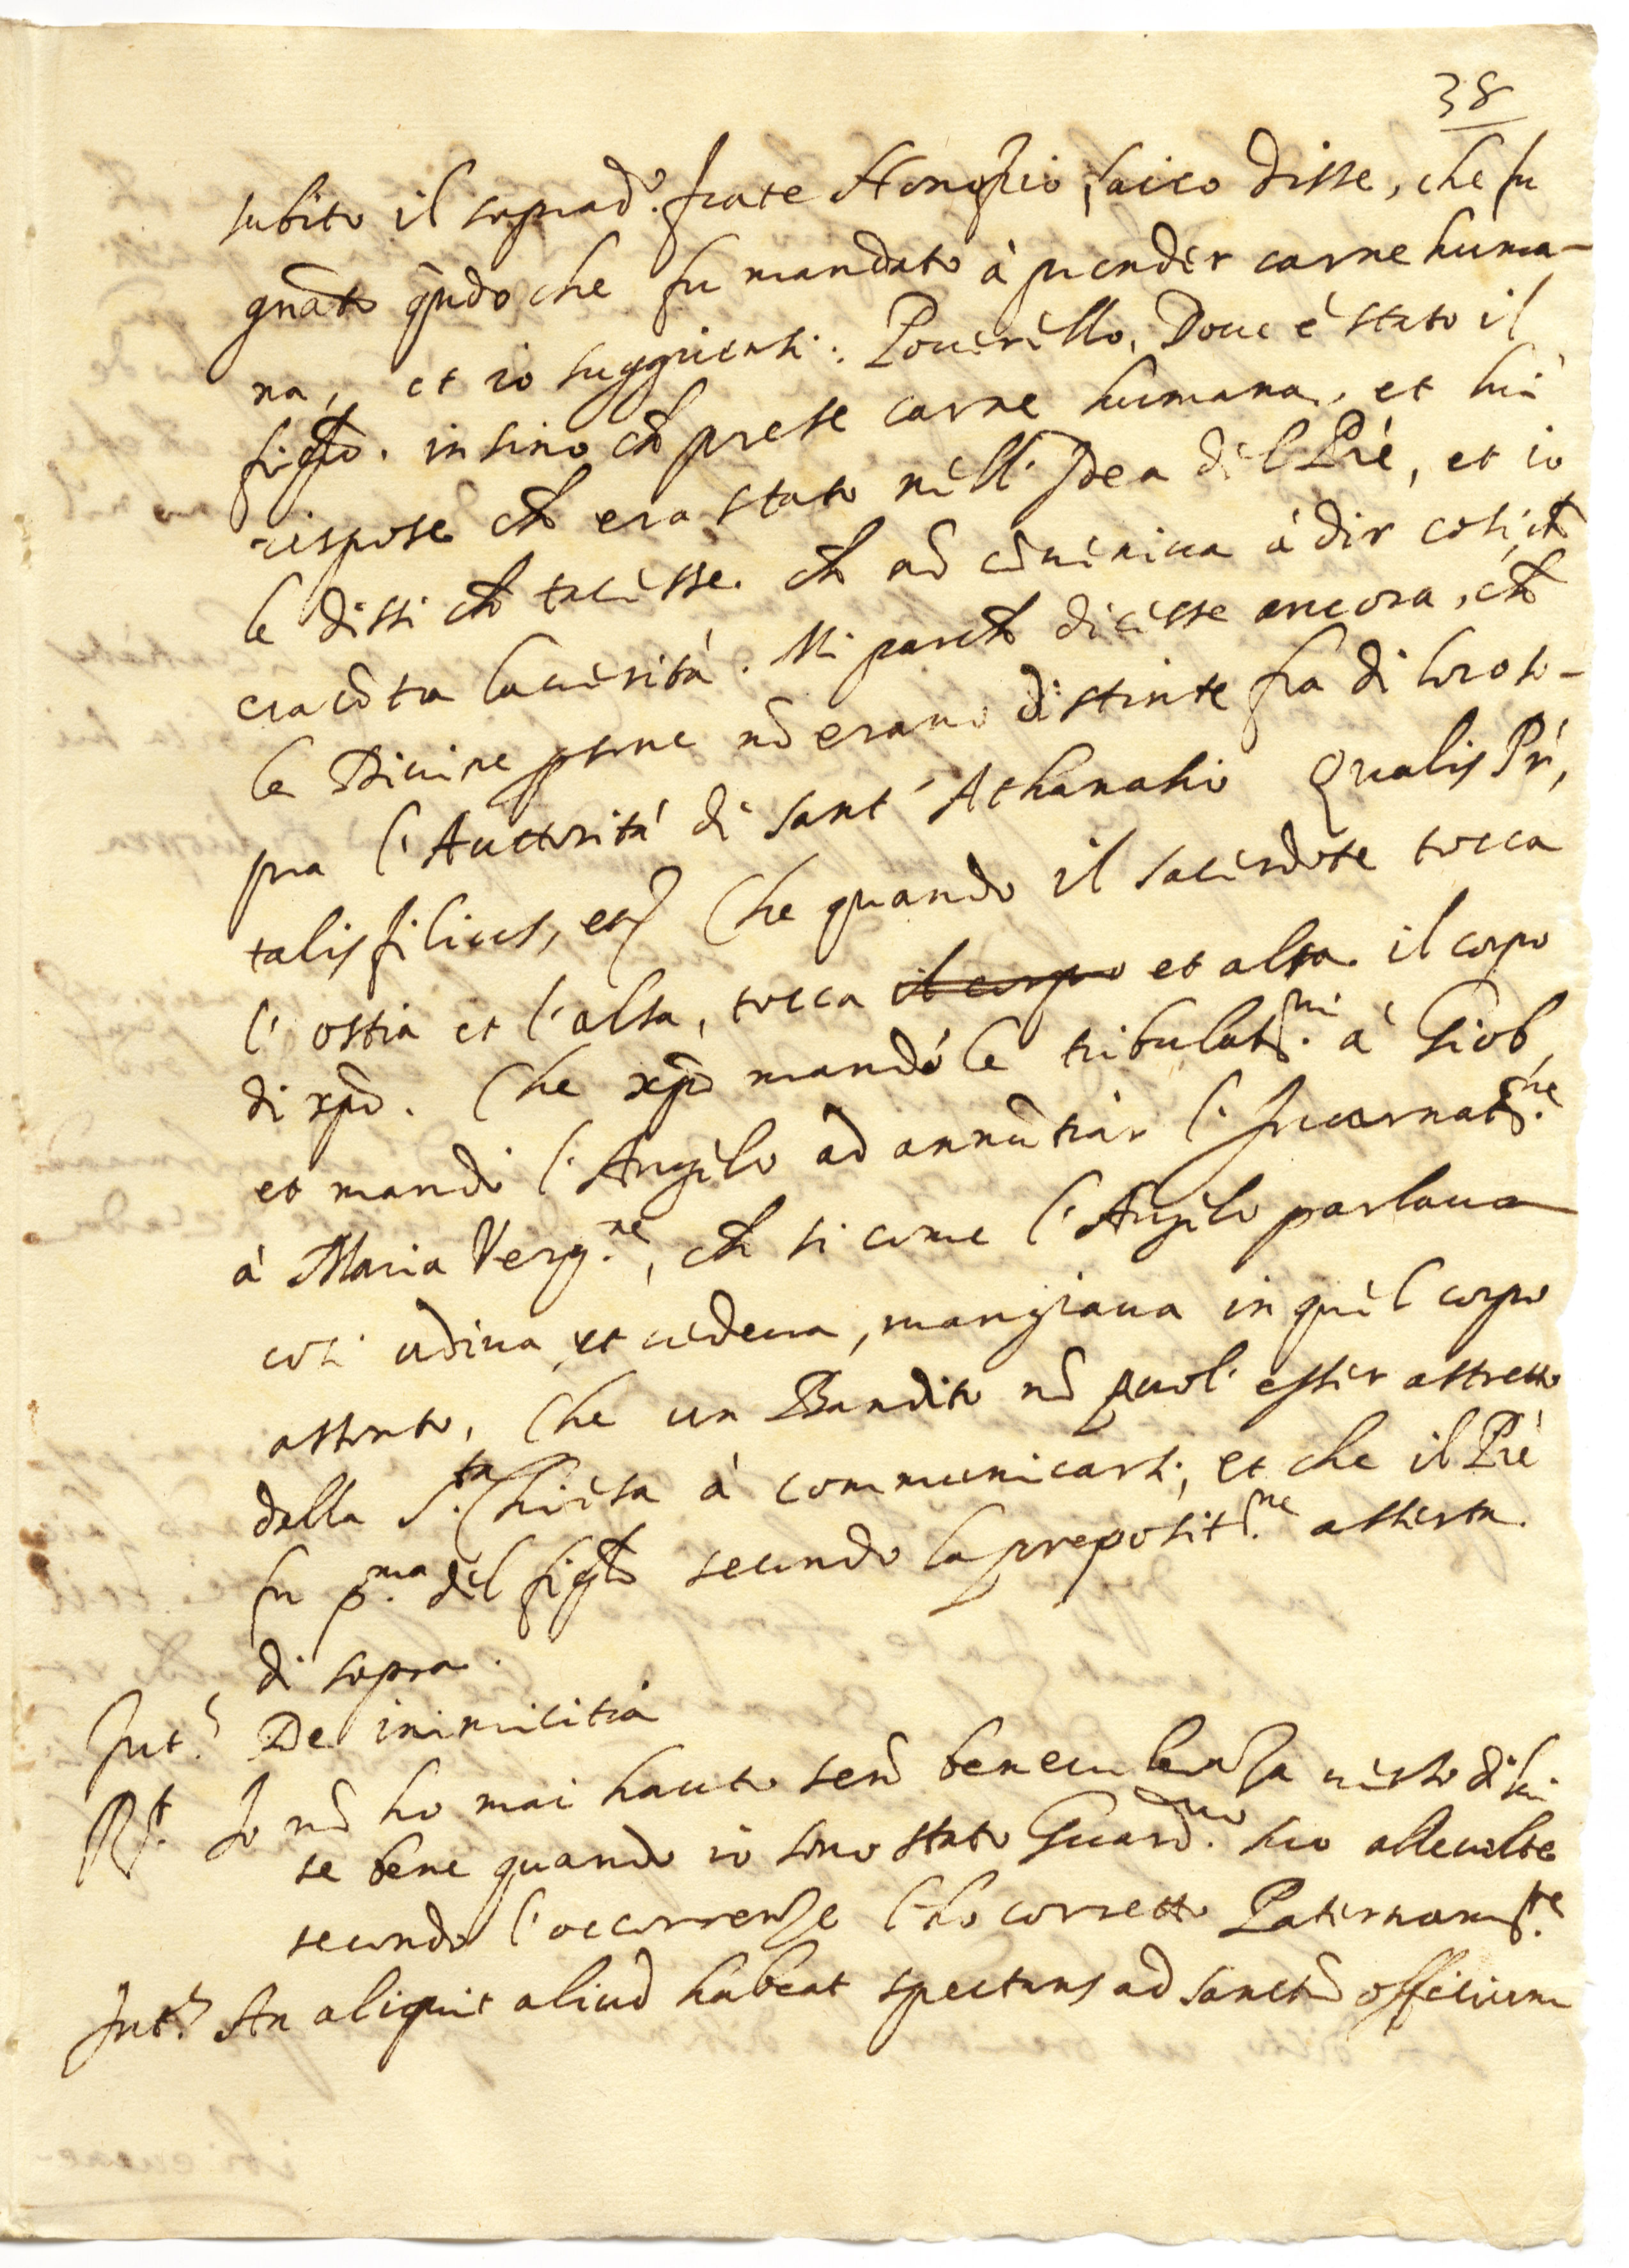 38
subito il soprad.º frate Honofrio laico disse, che fu
gñato qñdo che fu mandato à prender carne huma-
na, et io suggiensi: Poverello, Doue è stato il
figlõ. insino ch̃ prese carne humana, et lui
rispose ch̃ era stato nell'Idea del Prè, et io
le dissi ch̃ tacesse. ch̃ nõ cõueniua à dir così, ch̃
era cõtra la uerità. Mi par ch̃ dicesse ancora, ch̃
le Diuine psone nõ erano distinte fra di loro so-
pra l'Auttorità di sant'Athanasio Qualis Pr̃,
talis filius, et Che quando il sacerdote tocca
l'ostia et l'alsa, tocca il corpo et alsa il corpo
di xp̃o. Che xp̃o mandò le tribulat.ni à Giob,
et mandò l'Angelo ad annũtiar l'Incarnat.ne
à Maria Verg.ne, ch̃ si come l'Angelo parlaua
così udiua et uedeua, mangiaua in quel corpo
assonto, Che un Bandito nõ puol' esser astretto
dalla S.ta Chiesa à communicarsi, et che il Prè
fu p.ma del figlõ secondo la preposit.ne asserta
di sopra.
Int.s De inimicitia
R.t Io nõ ho mai hauuto senõ beneuolenza uerso di lui
se bene quando io sono stato Guard.no suo alleuolte
secondo l'occorrenze l'ho corretto Paternam.te
Int.s An aliquit aliud habeat spectans ad sanctũ officium